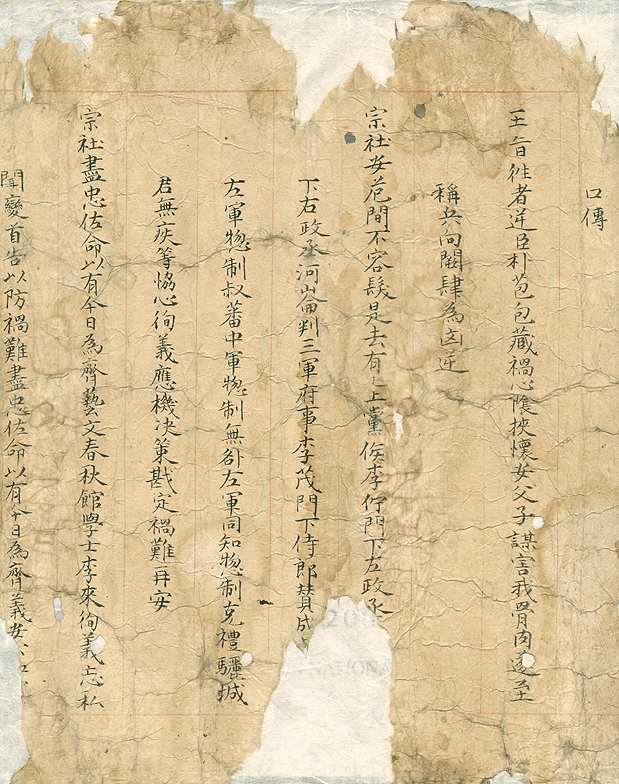 口傳
王旨徃者逆臣朴苞包藏禍心隂挾懷安父子謀害我骨肉遂至
稱兵向闕肆為凶逆
宗社安危間不容髮是去有上黨侯李佇門下左政丞
下右政丞河崙判三軍府事李茂門下侍郎贊成
左軍惣制叔蕃中軍惣制無咎左軍同知惣制克禮驪城
君無疾等恊心徇義應機决策戡定禍難再安
宗社盡忠佐命以有今日為齊藝文春秋館學士李來徇義忘私
聞變首告以防禍難盡忠佐命以有今日為齊義安